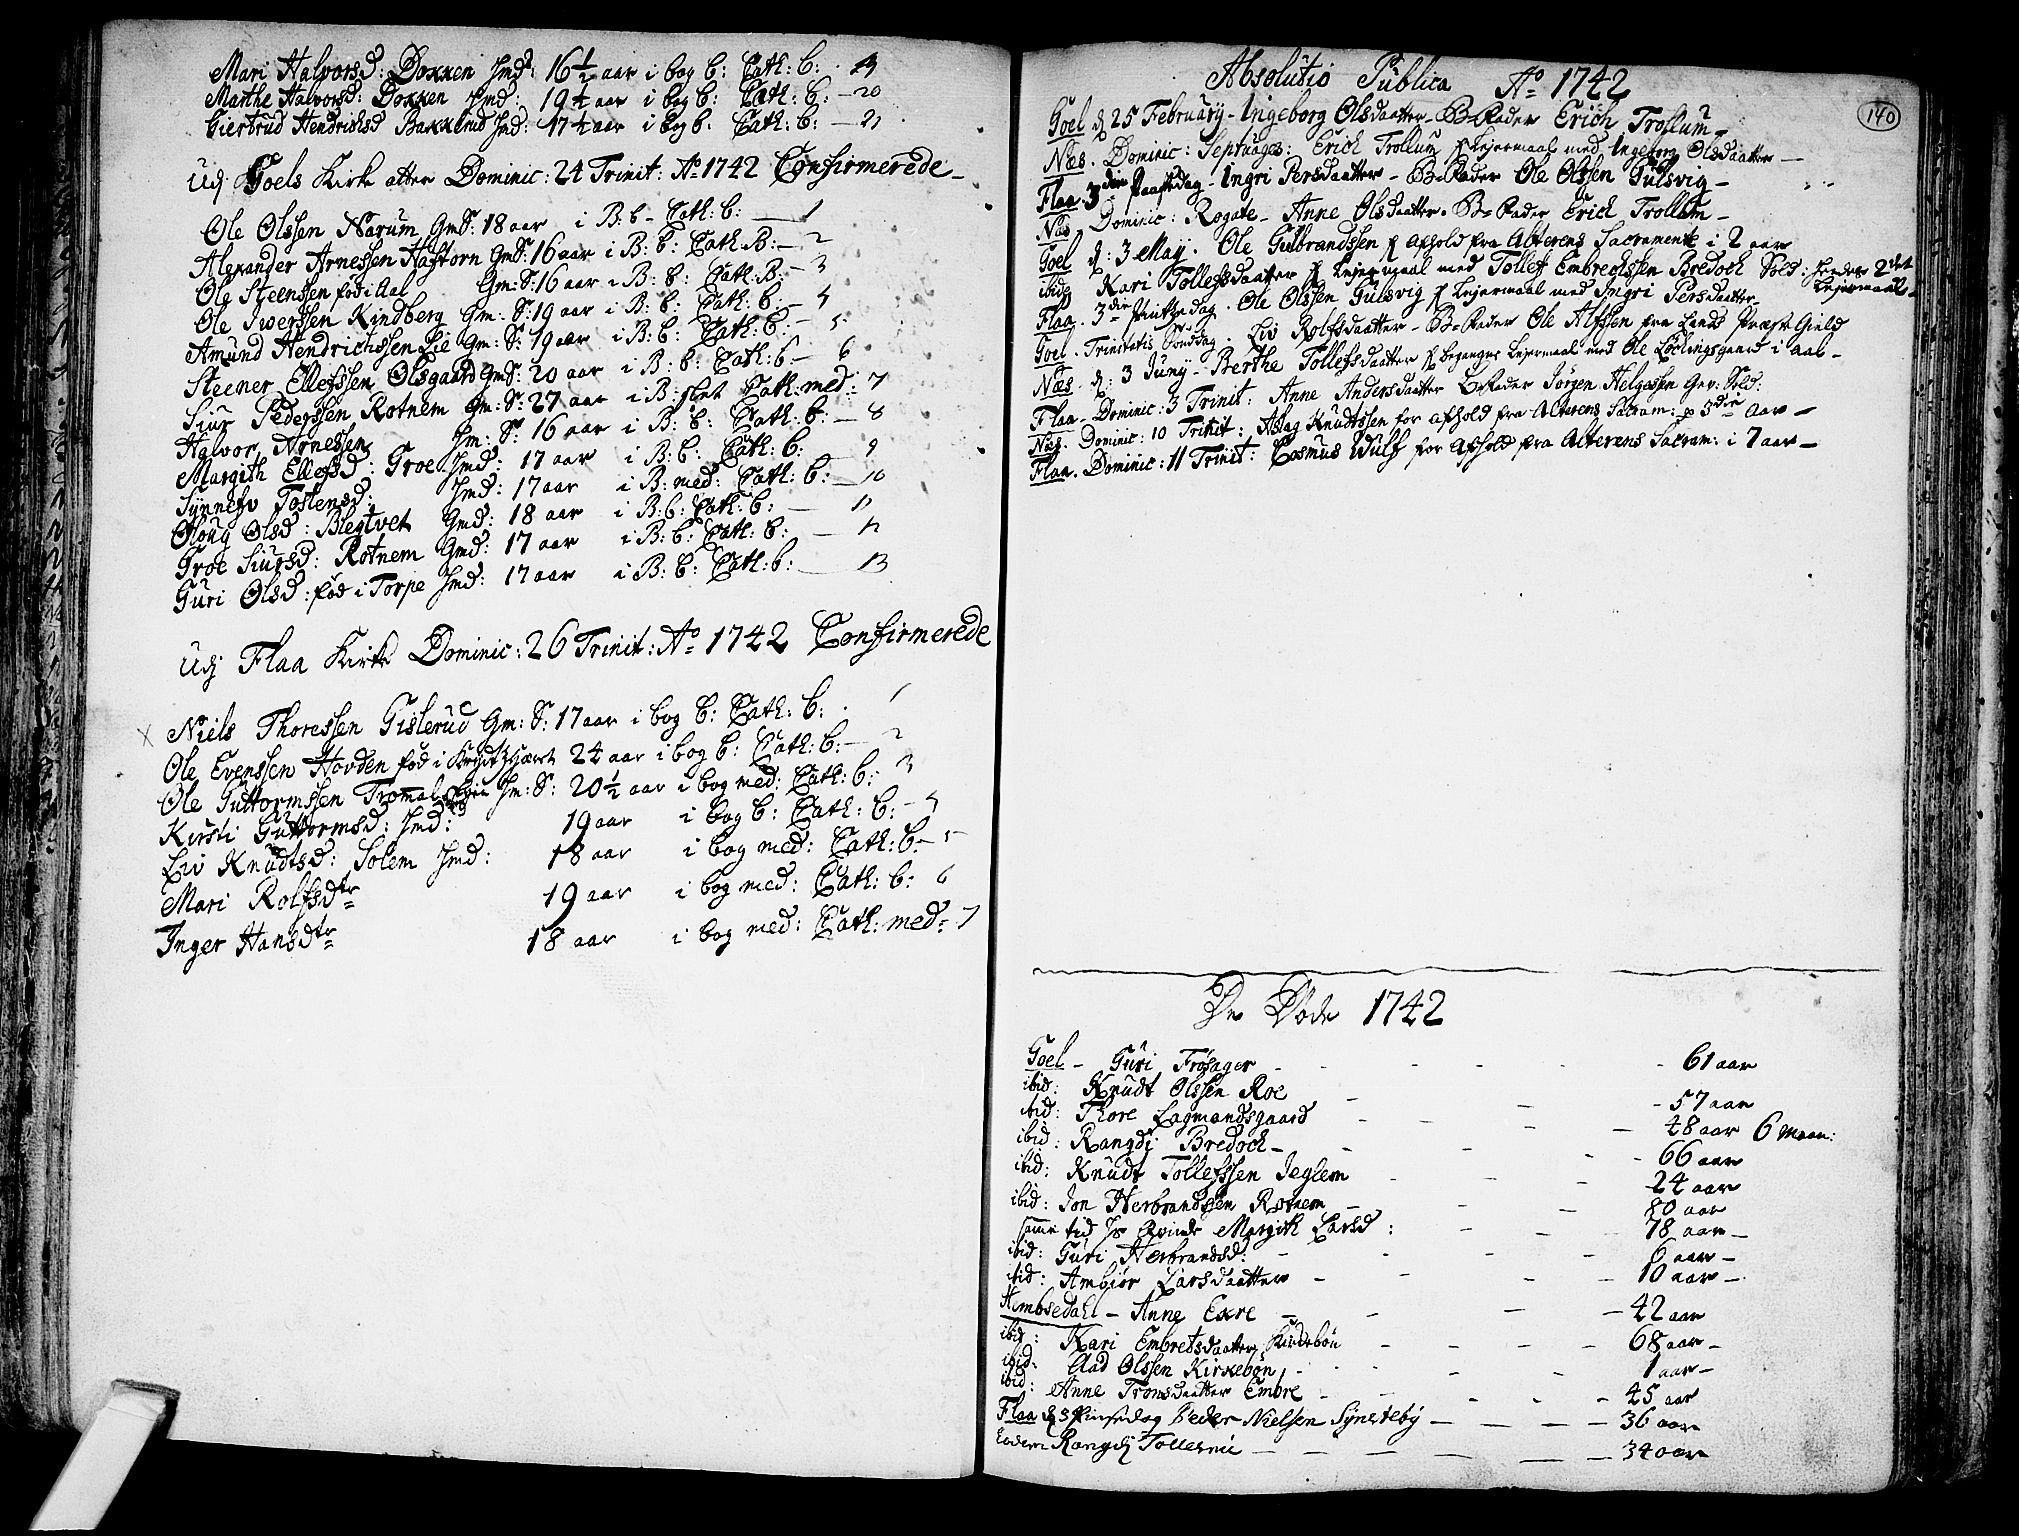 Mari Halvorsd: Doxxen Jmd: 16½ aar i bog b: Cath: b: 19
Marthe Halvorsd: Doxxen Jmd: 19½ aar i bog b: Cath: b: — 20
Giertrud Hendrichsd Baxxerud Jmd: 17½ aar i bog b: Cath: b: — 21
Udj Goels Kirke atter Dominic: 24 Trinit: Ao 1742 Confirmerede —
Ole Olssen Narum Gm: S: 18 aar i B: b — Cath: b: — 1
Alexander Arnessen Haftorn Gm: S: 16 aar i B: b: Cath: B: — 2
Ole Steenssen fød i Aal Gm: S: 16 aar i B: b: Cath: B: — 3
Ole Iwerssen Kindberg Gm: S: 19 aar i B: b: Cath: b: — 4
Amund Hendrichssen Lie Gm: S: 19 aar i B: b: Cath: b: — 5
Steener Ellefssen Olsgaard Gm: S: 20 aar i B: b: Cath: b — 6
Siur Pederssen Rotnem Gm: S: 27 aar i B: slet Cath: med: 7
Halvor Arnessen Jm: S: 16 aar i B: b: Cath: b: — 8
Margith Ellefsd: Groe Jmd: 17 aar i B: b: Cath: b: — 9
Synnefv Tostensd: Jmd: 17 aar i B: med: Cath: b: — 10
Oloug Olsd: Blegtvet Gmd: 18 aar i B: b: Cath: b: — 11
Groe Siursd: Rotnem Gmd: 17 aar i B: b: Cath: b: — 12
Guri Olsd: fød i Torpe Jmd: 17 aar i B: b: Cath: b: — 13
Udj Flaa Kirke Dominic: 26 Trinit: Ao 1742 Confirmerede
x Niels Thoressen Gislerud Gm: S: 17 aar i bog b: Cath: b: 1
Ole Evenssen Hovden fød i 24 aar i bog b: Cath: b: — 2
Ole Guttormssen Jm: S: 20½ aar i bog med: Cath: b: 3
Kirsti Guttormsd: Jmd: 19 aar i bog b: Cath: b: — 4
Liv Knudtsd: Solem Jmd: 18 aar i bog med: Cath: b: — 5
Mari Rolfsdtr 19 aar i bog med: Cath: b: 6
Inger Hansdtr 18 aar i bog med: Cath: med: 7
140
Absolutio Publica Ao 1742
Goel d 25 February — Ingeborg Olsdaatter — B-Fader Erich Trollum —
Næs. Dominic: Septuages: Erich Trollum f Lejermaal med Ingeborg Olsdaatter —
Flaa. 3die Paaskedag — Ingri Persdaatter — B-Fader Ole Olssen Gulsvig —
Næs. Dominic: Rogate — Anne Olsdaatter. B-Fader Erich Trollum —
Goel d: 3 May. Ole Gulbrandssen f Afhold fra Alterens Sacramente i 2 aar
ibid Kari Tollefsdaatter f Lejermaal med Tollef Embrechssen Bredoch Sold: hendes 2det Lejermaal —
Flaa. 3die Pintzedag. Ole Olssen Gulsvig f Lejermaal med Ingri Persdaatter
Goel. Trinitatis Sønddag. Liv Rolfsdaatter — B-Fader Ole Alfssen fra Lands Præste Gield
Næs. d: 3 Juny — Berthe Tollefsdaatter f begangne Lejermaal med Ole i Aal —
Flaa. Dominic: 3 Trinit: Anne Andersdaatter B-Fader Jørgen Helgessen Gev: Sold:
Næs. Dominic: 10 Trinit: Aslag Knudtssen for afhold fra Alterens Sacram: p 3die Aar —
Flaa. Dominic: 11 Trinit: Cosmus Wulf for Afhold fra Alterens Sacram: i 7 aar —
De Døde 1742
Goel — Guri Frøsager — 61 aar
ibid: Knudt Olssen Roe — 57 aar
ibid: Thore Lagmandsgaard — 48 aar 6 Maan:
ibid: Rangdj Bredoch — 66 aar
ibid: Knudt Tollefssen Jeglem — 24 aar
ibid: Jon Herbrandssen Rotnem — 80 aar
samme tid Hs Qvinde Margith Larsd: — 78 aar —
ibid: Guri Herbrandsd: — 6 aar —
ibid: Ambiør Larsdaatter — 10 aar —
Hembsedahl — Anne Exre — 42 aar
ibid: Kari Embretsdaatter — 68 aar —
ibid: Aad Olssen Kirxebøn — 1 aar —
ibid: Anne Tronsdaatter Embre — 45 aar
Flaa d 3 Pinsedag Peder Nielsen Synsteby — 36 aar
Eodem Rangdj — 34 aar